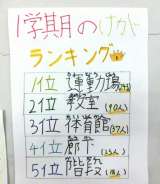 1学期のけが
ランキング
1位 運動場
2位 教室 (90人)
3位 体育館 (87人)
4位 廊下
5位 階段